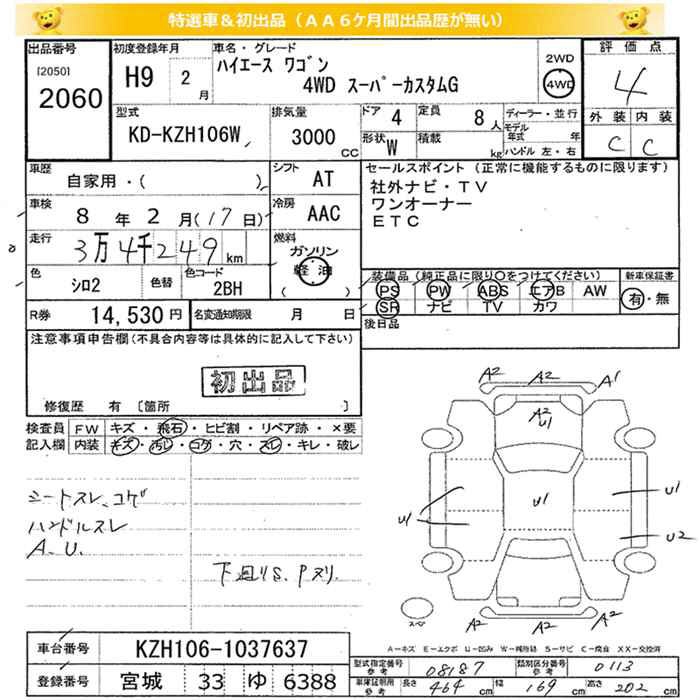 特選車＆初出品（ＡＡ６ケ月間出品歴が無い）
出品番号 初度登録年月 車名・グレード 評価点
[2050]
2060
H9 2月
ハイエース ワゴン
4WD スーパーカスタムG
2WD
4WD
4
型式 排気量 ドア 4 定員 8人 ディーラー・並行
KD-KZH106W 3000CC
形状 W 積載 kg モデル年式 年
ハンドル 左・右
外装 内装
C C
車歴 自家用・( )
シフト AT
セールスポイント（正常に機能するものに限ります）
社外ナビ・TV
ワンオーナー
ETC
車検 8年 2月 (17日)
冷房 AAC
走行 3万4千249km
燃料 ガソリン
軽油
( )
色 シロ2 色替 色コード 2BH
装備品（純正品に限り○をつけてください） 新車保証書
PS PW ABS エアB AW
SR ナビ TV カワ
有・無
R券 14,530円 名変通知期限 月 日
後日品
注意事項申告欄（不具合内容等は具体的に記入して下さい）
初出品
修復歴 有 [箇所 ]
検査員記入欄
FW キズ・飛石・ヒビ割・リペア跡・×要
内装 キズ・汚レ・コゲ・穴・スレ・キレ・破レ
シートスレ、コゲ
ハンドルスレ
A.U.
下廻りS.Pヌリ.
A2 A2 A1
A2
U1
U1 U1 U1
U2
A2 A2 A2
スペア
A－キズ E－エクボ U－凹み W－補修跡 S－サビ C－腐食 XX－交換済
車台番号 KZH106-1037637
登録番号 宮城 33 ゆ 6388
型式指定番号参考 08187 類別区分番号参考 0113
車庫証明用参考 長さ 464cm 幅 169cm 高さ 202cm